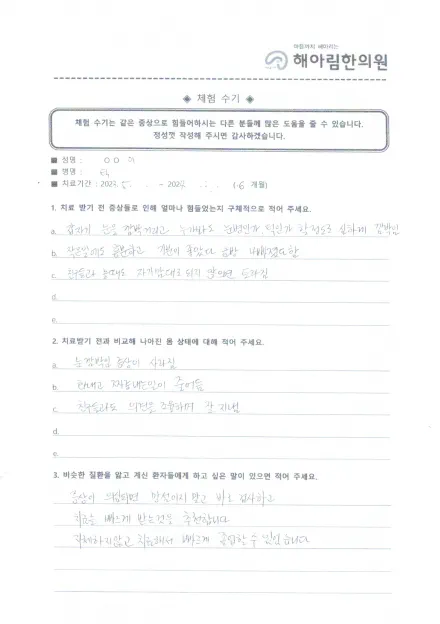 마음까지 헤아리는
해아림한의원
◈ 체험 수기 ◈
체험 수기는 같은 증상으로 힘들어하시는 다른 분들께 많은 도움을 줄 수 있습니다.
정성껏 작성해 주시면 감사하겠습니다.
■ 성명 : ㅇㅇㅇ
■ 병명 : 틱
■ 치료기간 : 202 . . - 202 . . (6 개월)
1. 치료 받기 전 증상들로 인해 얼마나 힘들었는지 구체적으로 적어 주세요.
a. 갑자기 눈을 깜박거리고 누가봐도 틱인가 할정도로 심하게 깜박임
b. 작은일에도 흥분하고 기분이 좋았다 금방 나빠졌다함
c. 친구들과 놀때도 자기맘대로 되지 않으면
d.
e.
2. 치료받기 전과 비교해 나아진 몸 상태에 대해 적어 주세요.
a. 눈깜박임 증상이 사라짐
b. 화내고 짜증내는일이 줄어듬
c. 친구들과도 의견을 조율하며 잘 지냄
d.
e.
3. 비슷한 질환을 앓고 계신 환자들에게 하고 싶은 말이 있으면 적어 주세요.
증상이 의심되면 망설이지 말고 바로 검사하고
치료를 빠르게 받는것을 추천합니다
지체하지않고 치료해서 빠르게 수 있었습니다